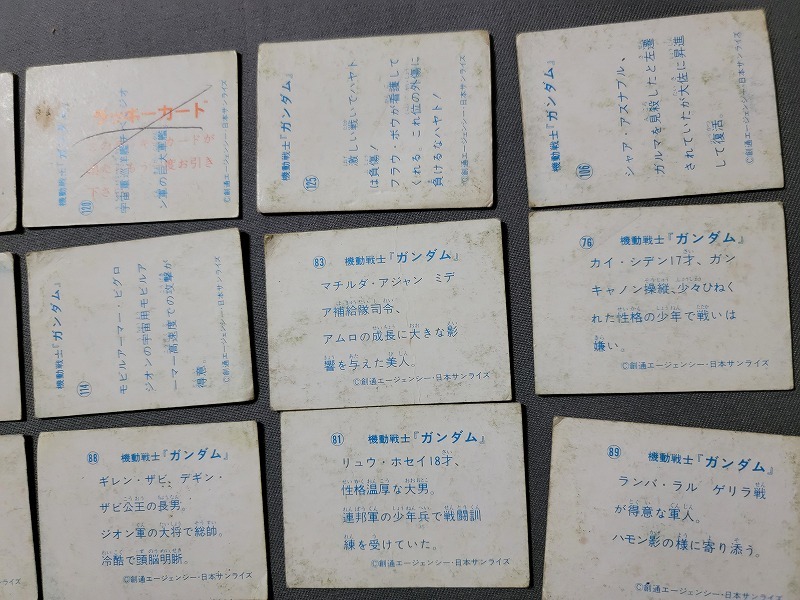 機動戦士『ガンダム』
120
宇宙軍巡洋艦
ン軍の巨大軍艦
ネーカード
©創通エージェンシー・日本サンライズ
機動戦士『ガンダム』
125
激しい戦いでハヤト
は負傷!
フラウ・ボウが看護して
くれる。これ位の外傷に
負けるなハヤト!
©創通エージェンシー・日本サンライズ
機動戦士『ガンダム』
106
シャア・アズナブル、
ガルマを見殺したと左遷
されていたが大佐に昇進
して復活
©創通エージェンシー・日本サンライズ
機動戦士『ガンダム』
114
モビルアーマー・ビグロ
ジオンの宇宙用モビルア
ーマー高速度での攻撃が
得意。
©創通エージェンシー・日本サンライズ
83 機動戦士『ガンダム』
マチルダ・アジャン ミデ
ア補給隊司令、
アムロの成長に大きな影
響を与えた美人。
©創通エージェンシー・日本サンライズ
76 機動戦士『ガンダム』
カイ・シデン17才、ガン
キャノン操縦、少々ひねく
れた性格の少年で戦いは
嫌い。
©創通エージェンシー・日本サンライズ
88 機動戦士『ガンダム』
ギレン・ザビ、デギン・
ザビ公王の長男。
ジオン軍の大将で総帥。
冷酷で頭脳明晰。
©創通エージェンシー・日本サンライズ
81 機動戦士『ガンダム』
リュウ・ホセイ18才、
性格温厚な大男。
連邦軍の少年兵で戦闘訓
練を受けていた。
©創通エージェンシー・日本サンライズ
89 機動戦士『ガンダム』
ランバ・ラル ゲリラ戦
が得意な軍人。
ハモン影の様に寄り添う。
©創通エージェンシー・日本サンライズ